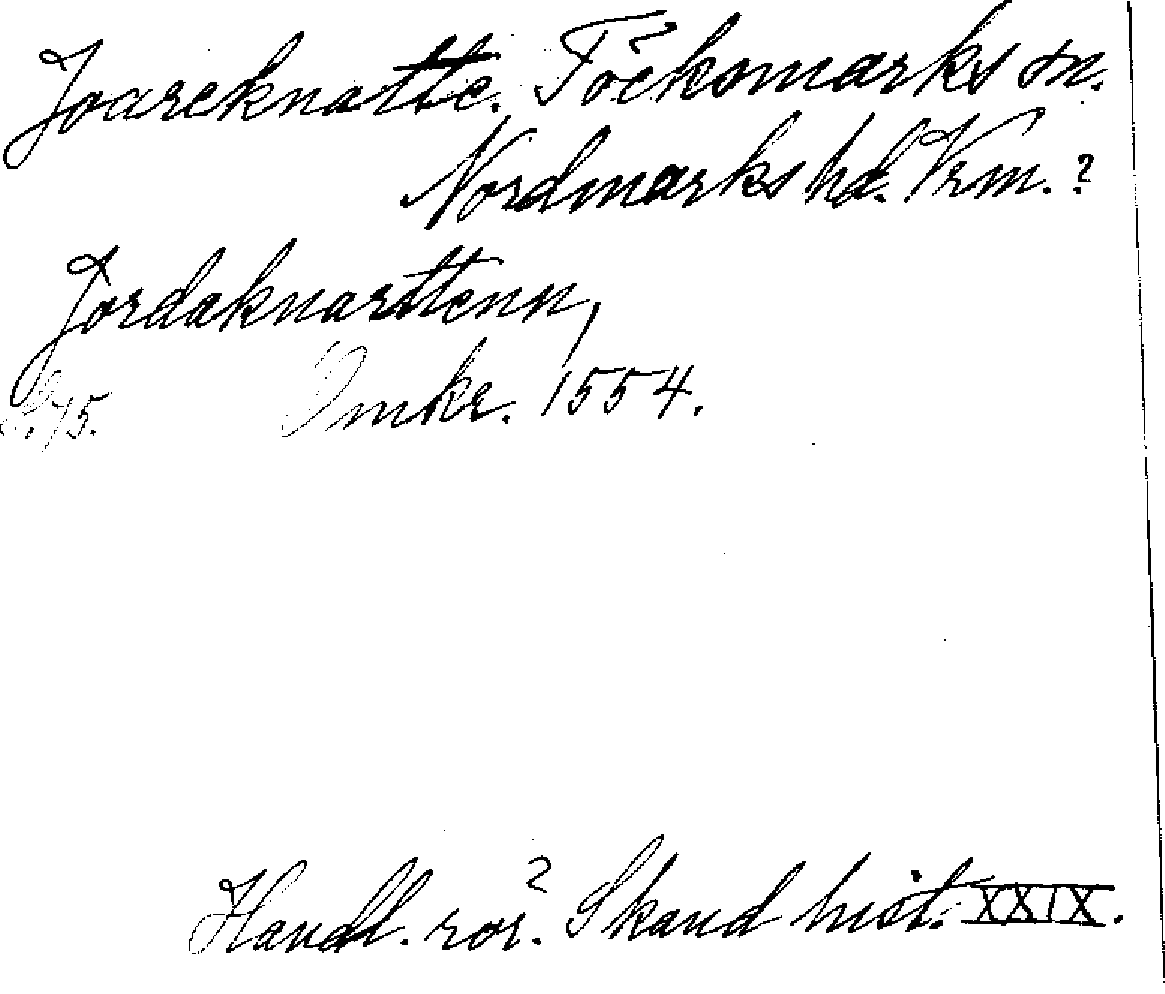 Joareknatte. Töcksmarks sn.
Nordmarks hd. Vrm. ?
Jordaknarttenn,
S. 75. Omkr. 1554.
Handl. rör. Skand hist. XXIX.